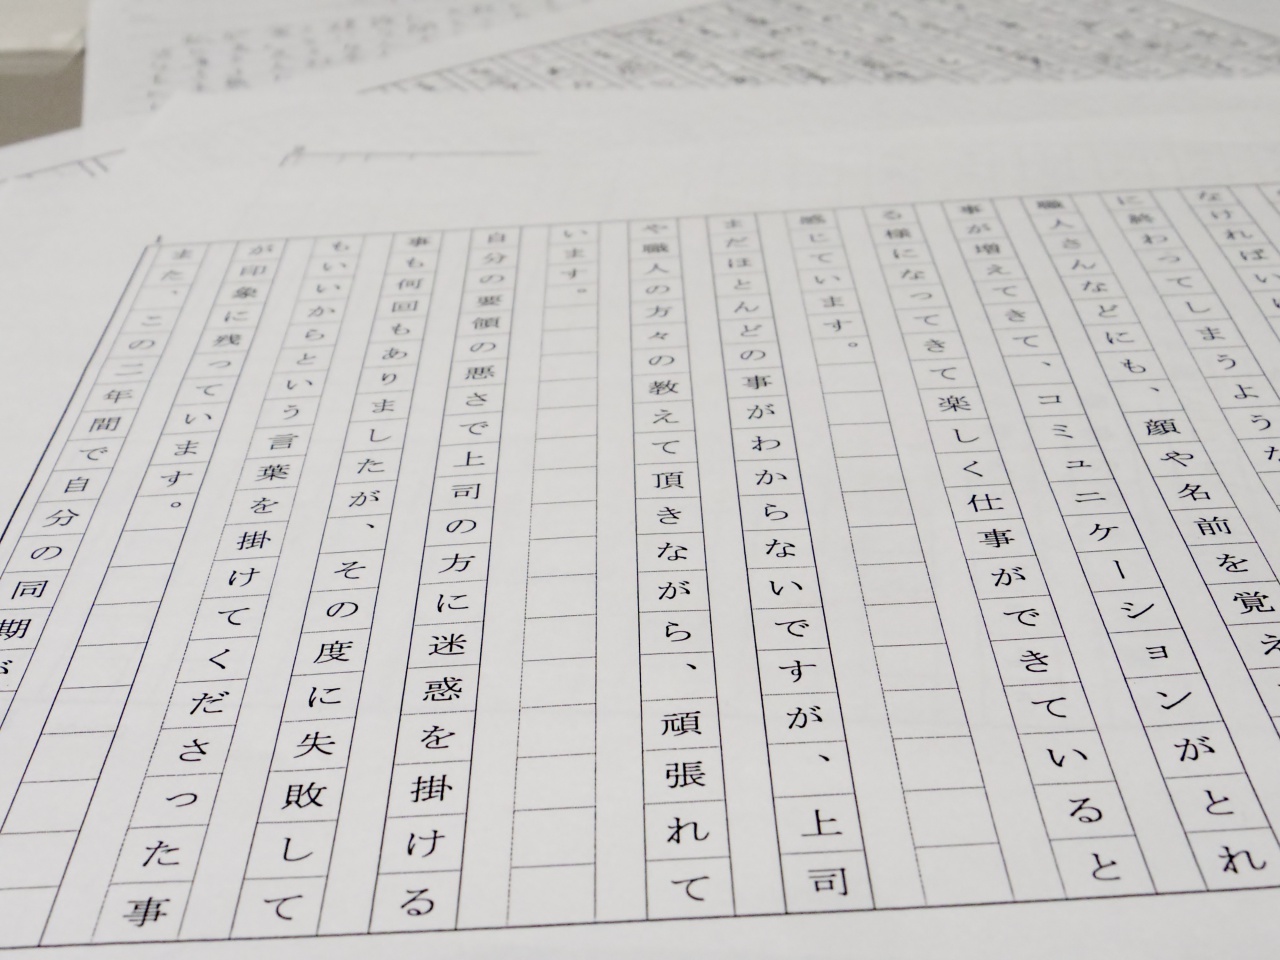 なければい
に終わってしまうような
職人さんなどにも、顔や名前を覚え
事が増えてきて、コミュニケーションがとれ
る様になってきて楽しく仕事ができていると
感じています。
まだほとんどの事がわからないですが、上司
や職人の方々の教えて頂きながら、頑張れて
います。
自分の要領の悪さで上司の方に迷惑を掛ける
事も何回もありましたが、その度に失敗して
もいいからという言葉を掛けてくださった事
が印象に残っています。
また、この二年間で自分の同期が